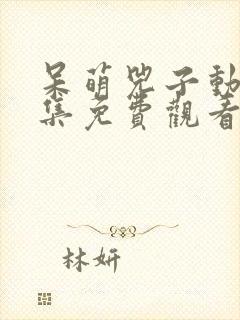 呆萌兕子動
集免費觀看
林妍